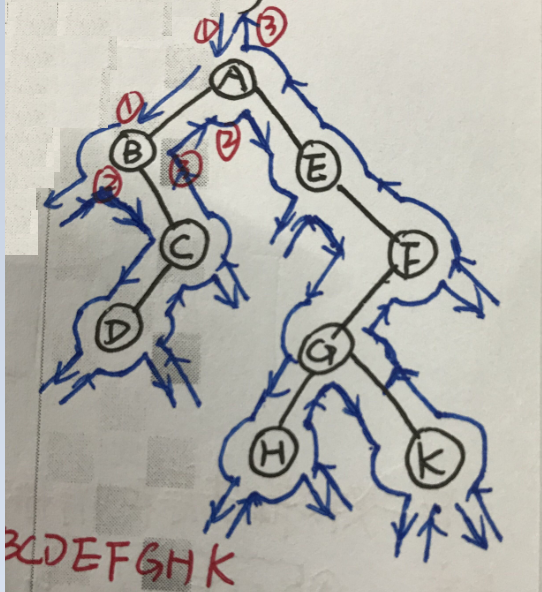 ① ③
A
① B ② ③ ② E
C F
D G
H K
BCDEFGHK